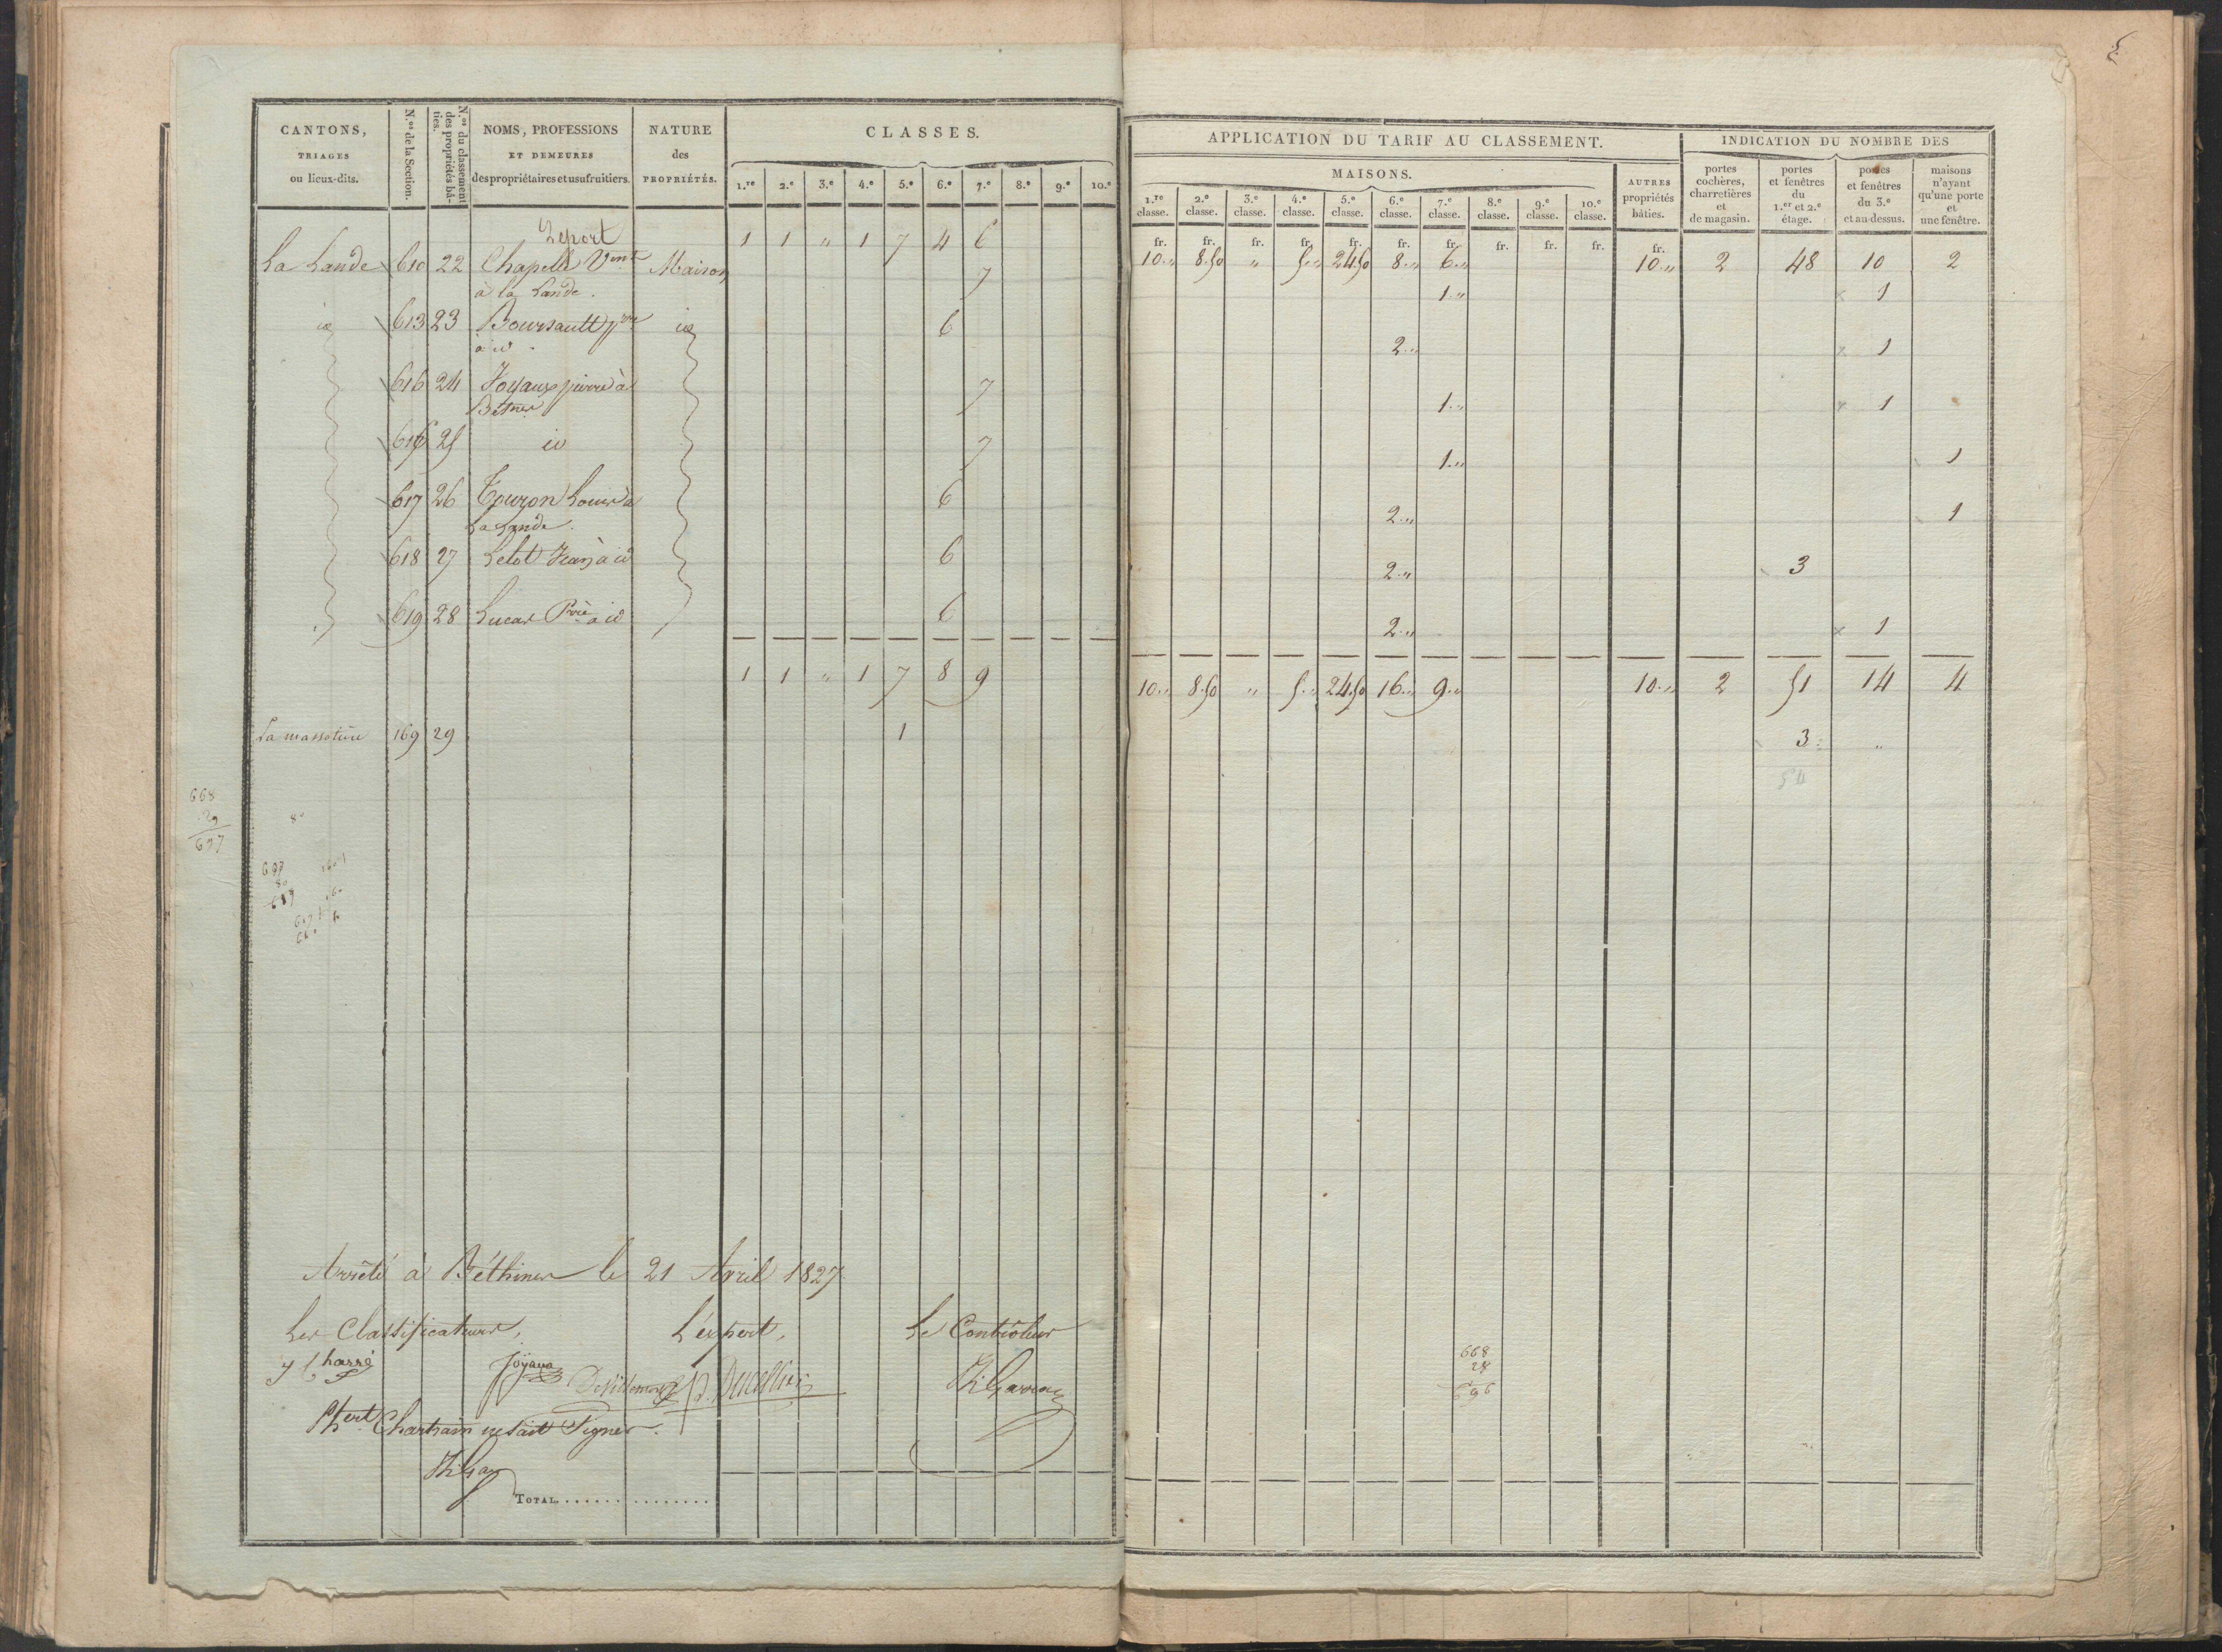 CANTONS,
TRIAGES
ou lieux-dits.
N.os de la Section.
N.os du classement des propriétés bâties.
NOMS, PROFESSIONS
ET DEMEURES
des propriétaires et usufruitiers.
NATURE
des
PROPRIÉTÉS.
CLASSES.
1.re 2.e 3.e 4.e 5.e 6.e 7.e 8.e 9.e 10.e
APPLICATION DU TARIF AU CLASSEMENT.
MAISONS.
1.re classe. 2.e classe. 3.e classe. 4.e classe. 5.e classe. 6.e classe. 7.e classe. 8.e classe. 9.e classe. 10.e classe.
AUTRES
propriétés
bâties.
INDICATION DU NOMBRE DES
portes cochères, charretières et de magasin.
portes et fenêtres du 1.er et 2.e étage.
portes et fenêtres du 3.e et au-dessus.
maisons n'ayant qu'une porte et une fenêtre.
fr. fr. fr. fr. fr. fr. fr. fr. fr. fr. fr.
Report 1 1 " 1 7 4 6 10.." 8.50 " 5.." 24.50 8.." 6.." 10.." 2 48 10 2
La Lande 610 22 Chapelle Vent Maison 7 1.." 1
à la Lande.
id 613 23 Boursault id 6 2.." 1
à id.
616 24 Joyaux pierre à 7 1.." 1
Bétines
25 id 7 1.." 1
617 26 Touron Louis à 6 2.." 1
La Lande.
618 27 Lelot Jean à id 6 2.." 3
619 28 Lucas Pre à id 6 2.." 1
1 1 " 1 7 8 9 10.." 8.50 " 5.." 24.50 16.." 9.." 10.." 2 51 14 4
169 29 1 3 "
54
668
29
697
80
Arrêté à Béthines le 21 Avril 1827
Les Classificateurs, L'expert, Le Contrôleur
Joyaux
Chartrain ne sait Signer.
668
28
696
TOTAL